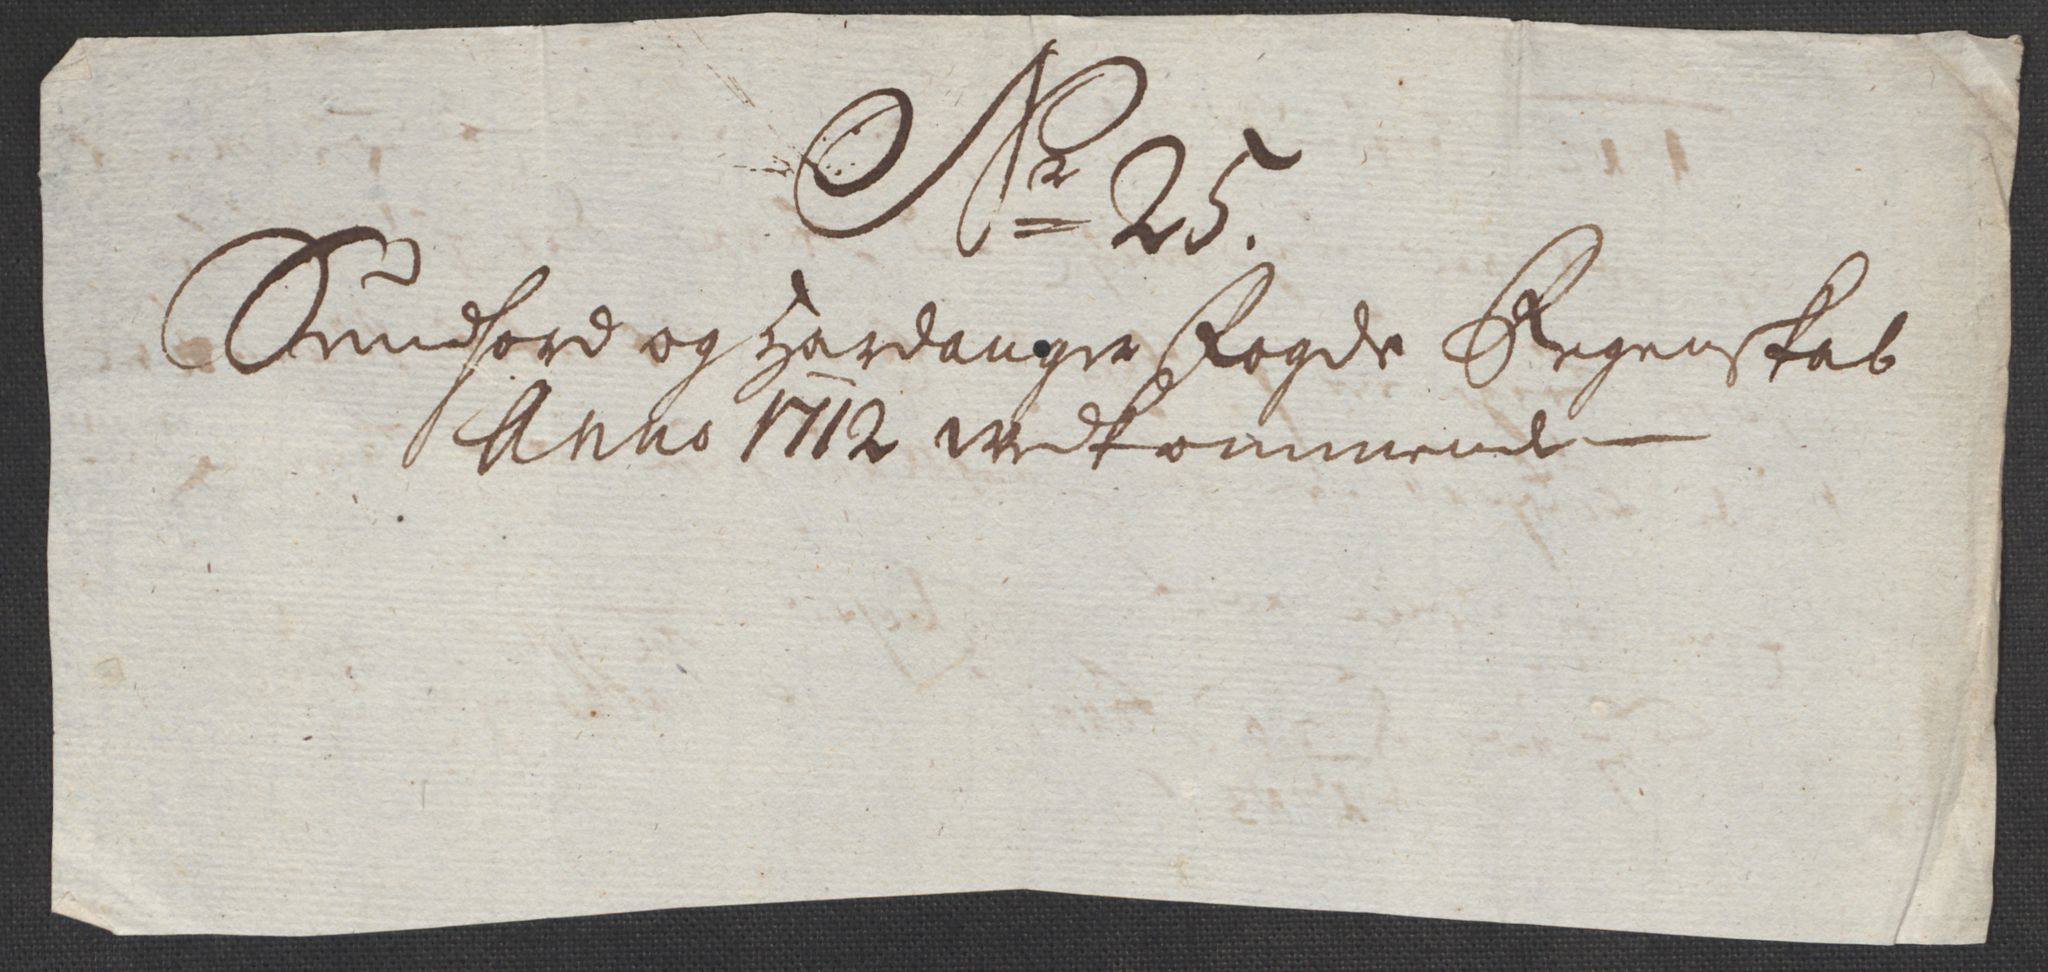 Nr 25.
Sundhord og Hardanger Fogde Regenskab
Anno 1712 vedkommende